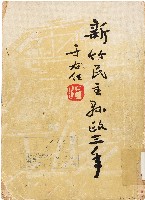 新竹民主縣政三年
于右任